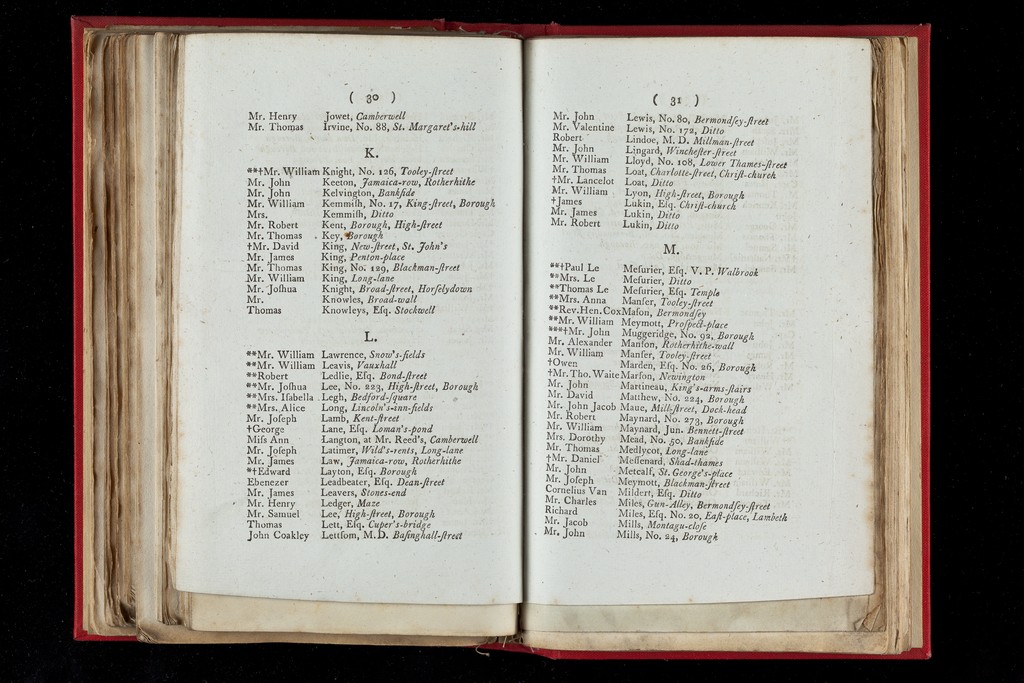 ( 30 )
Mr. Henry Jowet, Camberwell
Mr. Thomas Irvine, No. 88, St. Margaret's-hill
K.
**†Mr. William Knight, No. 126, Tooley-ſtreet
Mr. John Keeton, Jamaica-row, Rotherhithe
Mr. John Kelvington, Bankſide
Mr. William Kemmiſh, No. 17, King-ſtreet, Borough
Mrs. Kemmiſh, Ditto
Mr. Robert Kent, Borough, High-ſtreet
Mr. Thomas Key, Borough
†Mr. David King, New-ſtreet, St. John's
Mr. James King, Penton-place
Mr. Thomas King, No. 129, Blackman-ſtreet
Mr. William King, Long-lane
Mr. Joſhua Knight, Broad-ſtreet, Horſelydown
Mr. Knowles, Broad-wall
Thomas Knowleys, Eſq. Stockwell
L.
**Mr. William Lawrence, Snow's-fields
**Mr. William Leavis, Vauxhall
**Robert Ledlie, Eſq. Bond-ſtreet
**Mr. Joſhua Lee, No. 223, High-ſtreet, Borough
**Mrs. Iſabella Legh, Bedford-ſquare
**Mrs. Alice Long, Lincoln's-inn-fields
Mr. Joſeph Lamb, Kent-ſtreet
†George Lane, Eſq. Loman's-pond
Miſs Ann Langton, at Mr. Reed's, Camberwell
Mr. Joſeph Latimer, Wild's-rents, Long-lane
Mr. James Law, Jamaica-row, Rotherhithe
*†Edward Layton, Eſq. Borough
Ebenezer Leadbeater, Eſq. Dean-ſtreet
Mr. James Leavers, Stones-end
Mr. Henry Ledger, Maze
Mr. Samuel Lee, High-ſtreet, Borough
Thomas Lett, Eſq. Cuper's-bridge
John Coakley Lettſom, M.D. Baſinghall-ſtreet
( 31 )
Mr. John Lewis, No. 80, Bermondſey-ſtreet
Mr. Valentine Lewis, No. 172, Ditto
Robert Lindoe, M. D. Millman-ſtreet
Mr. John Lingard, Wincheſter-ſtreet
Mr. William Lloyd, No. 108, Lower Thames-ſtreet
Mr. Thomas Loat, Charlotte-ſtreet, Chriſt-church
†Mr. Lancelot Loat, Ditto
Mr. William Lyon, High-ſtreet, Borough
†James Lukin, Eſq. Chriſt-church
Mr. James Lukin, Ditto
Mr. Robert Lukin, Ditto
M.
**†Paul Le Meſurier, Eſq. V. P. Walbrook
**Mrs. Le Meſurier, Ditto
**Thomas Le Meſurier, Eſq. Temple
**Mrs. Anna Manſer, Tooley-ſtreet
**Rev. Hen. Cox Maſon, Bermondſey
**Mr. William Meymott, Proſpect-place
***†Mr. John Muggeridge, No. 92, Borough
Mr. Alexander Manſon, Rotherhithe-wall
Mr. William Manſer, Tooley-ſtreet
†Owen Marden, Eſq. No. 26, Borough
†Mr. Tho. Waite Marſon, Newington
Mr. John Martineau, King's-arms-ſtairs
Mr. David Matthew, No. 224, Borough
Mr. John Jacob Maue, Mill-ſtreet, Dock-head
Mr. Robert Maynard, No. 273, Borough
Mr. William Maynard, Jun. Bennett-ſtreet
Mrs. Dorothy Mead, No. 50, Bankſide
Mr. Thomas Medlycot, Long-lane
†Mr. Daniel Meſſenard, Shad-thames
Mr. John Metcalf, St. George's-place
Mr. Joſeph Meymott, Blackman-ſtreet
Cornelius Van Mildert, Eſq. Ditto
Mr. Charles Miles, Gun-Alley, Bermondſey-ſtreet
Richard Miles, Eſq. No. 20, Eaſt-place, Lambeth
Mr. Jacob Mills, Montagu-cloſe
Mr. John Mills, No. 24, Borough